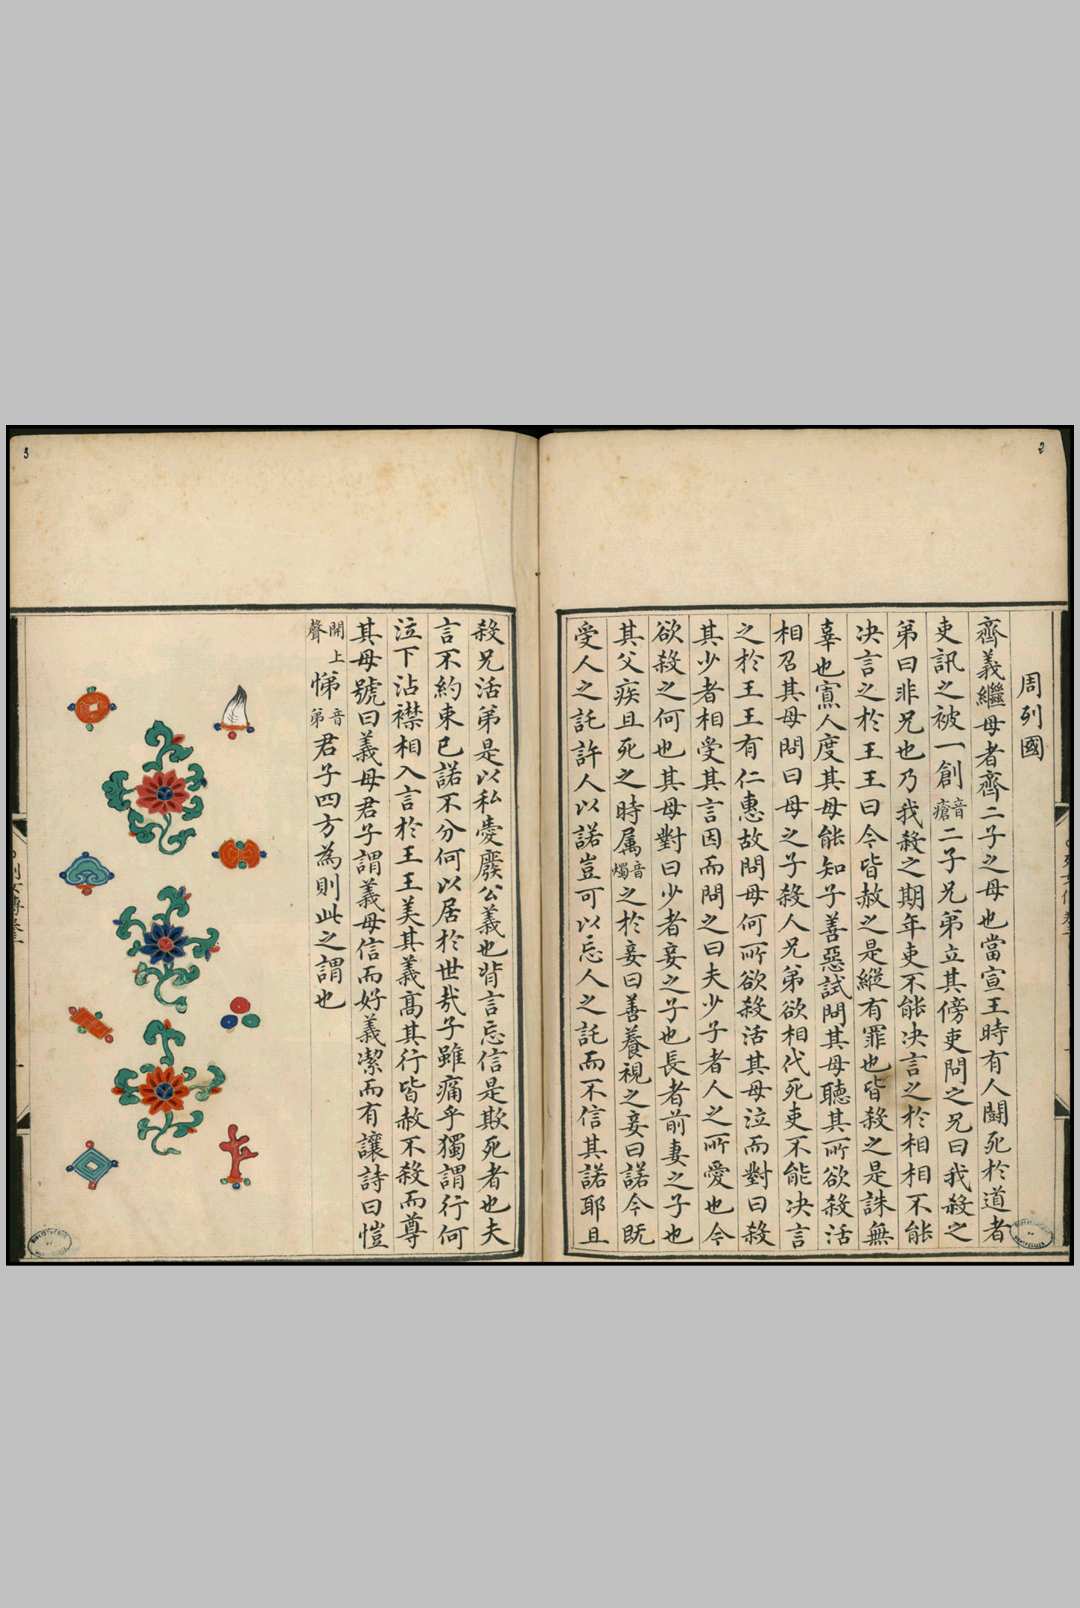 2
周列國
齊義繼母者齊二子之母也當宣王時有人鬭死於道者
吏訊之被一創音瘡二子兄弟立其傍吏問之兄曰我殺之
弟曰非兄也乃我殺之期年吏不能决言之於相相不能
决言之於王王曰今皆赦之是縱有罪也皆殺之是誅無
辜也寡人度其母能知子善惡試問其母聽其所欲殺活
相召其母問曰母之子殺人兄弟欲相代死吏不能决言
之於王王有仁惠故問母何所欲殺活其母泣而對曰殺
其少者相受其言因而問之曰夫少子者人之所愛也今
欲殺之何也其母對曰少者妾之子也長者前妻之子也
其父疾且死之時属音燭之於妾曰善養視之妾曰諾今既
受人之託許人以諾豈可以忘人之託而不信其諾耶且
3
殺兄活弟是以私愛廢公義也背言忘信是欺死者也夫
言不約束已諾不分何以居於世㢤子雖痛乎獨謂行何
泣下沾襟相入言於王王美其義髙其行皆赦不殺而尊
其母號曰義母君子謂義母信而好義潔而有讓詩曰愷
開上聲悌音弟君子四方為則此之謂也